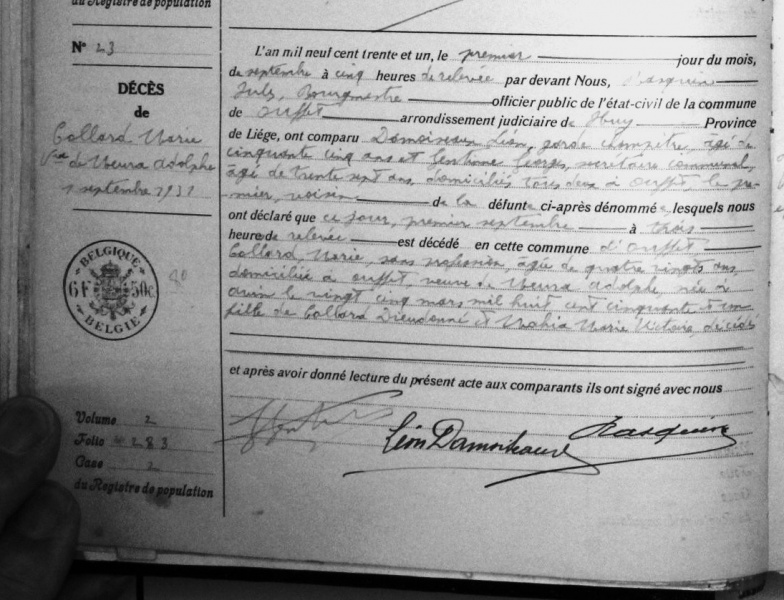 du Registre de population
N° 23
DÉCÈS
de
Collard Marie
Vve de Meura Adolphe
1 septembre 1931
BELGIQUE
6F 50c.
BELGIË
80
Volume 2
Folio 283
Case 2
du Registre de population
L'an mil neuf cent trente et un, le premier jour du mois,
de septembre à cinq heures de relevée par devant Nous, Rasquin
Jules, Bourgmestre officier public de l'état-civil de la commune
de Ouffet arrondissement judiciaire de Huy Province
de Liége, ont comparu Damoiseaux Léon, garde champêtre, âgé de
cinquante cinq ans et Georges, secrétaire communal,
âgé de trente sept ans, domiciliés tous deux à Ouffet, le pre-
mier, voisin de la défunte ci-après dénommée, lesquels nous
ont déclaré que ce jour, premier septembre à trois
heures de relevée est décédé en cette commune d'Ouffet
Collard, Marie, sans profession, âgée de quatre vingts ans,
domiciliée à Ouffet, veuve de Meura Adolphe, née à
le vingt cinq mars mil huit cent cinquante et un
fille de Collard Dieudonné et Mahia Marie Victoire, décédés
et après avoir donné lecture du présent acte aux comparants ils ont signé avec nous
Léon Damoiseaux Rasquin